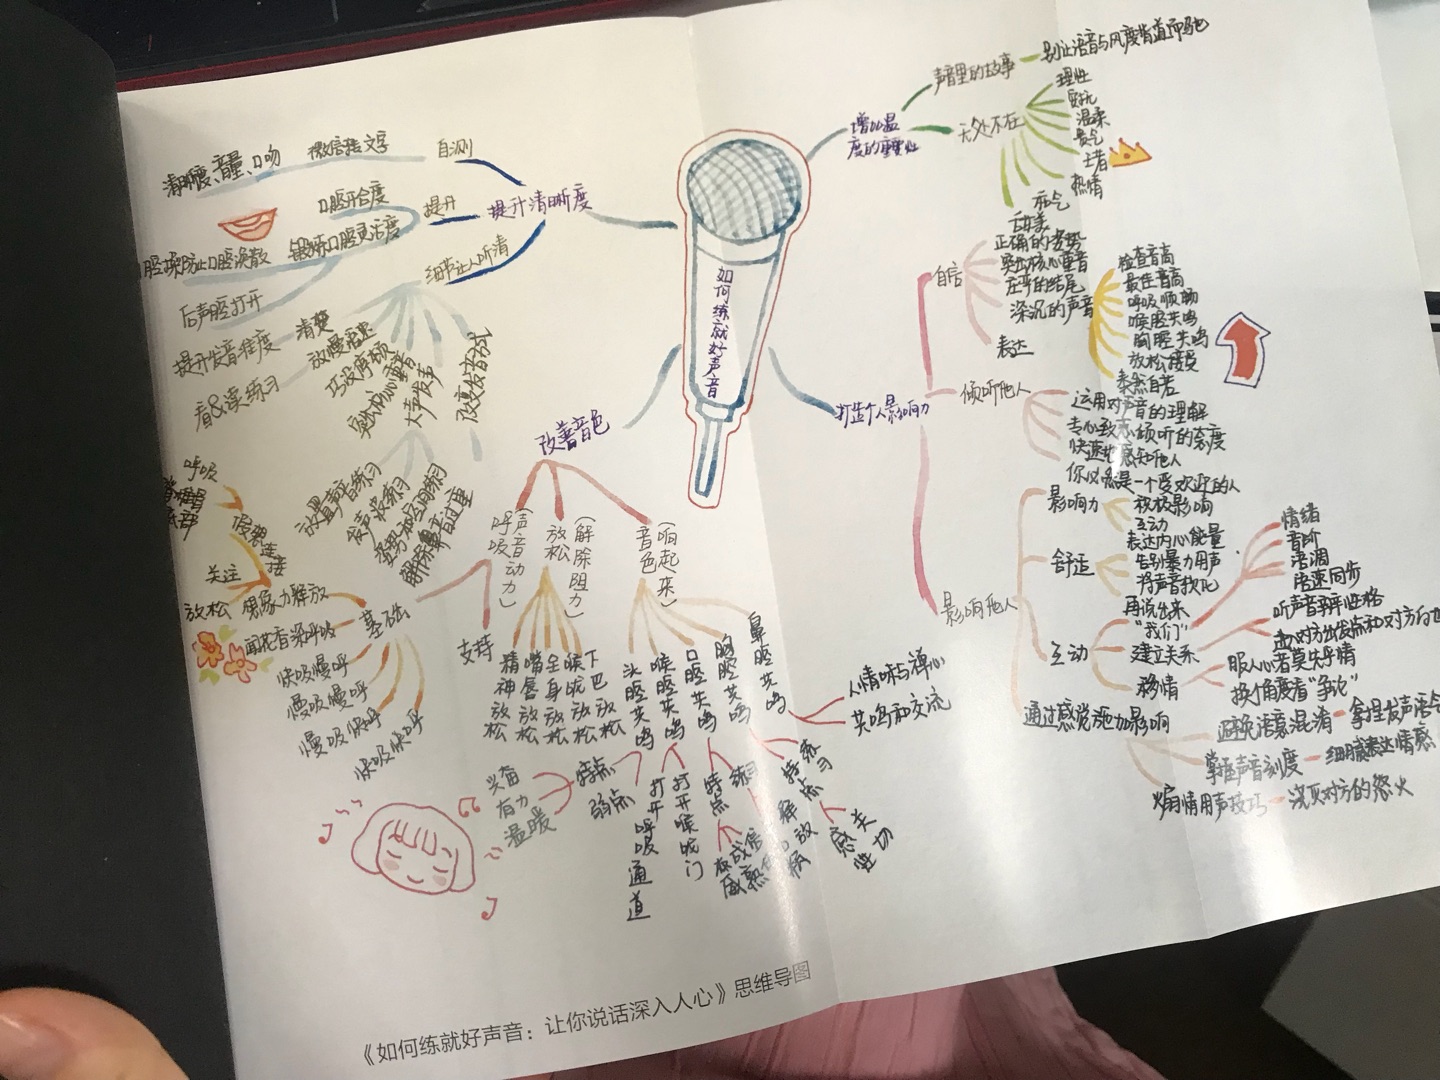 如何练就好声音
声音里的故事
别让语音与风度背道而驰
无处不在
理性
温柔
贵气
王者
热情
自信
正确的姿势
突出核心重音
庄严的结尾
深沉的声音
表达
检查音高
最佳音高
呼吸顺畅
喉腔共鸣
胸腔共鸣
放松
泰然自若
打造个人影响力
倾听他人
运用对声音的理解
专心致志倾听的态度
快速地感知他人
你必然是一个受欢迎的人
影响他人
影响力
积极影响
互动
表达内心能量
舒适
告别暴力用声
将声音软化
再说出来
互动
"我们"
情绪
音阶
语调
语速同步
建立关系
听声音辨性格
移情
服人心者莫先乎情
换个角度看"争论"
通过感觉施加影响
避免语意混淆
掌握声音刻度
细腻表达情感
煽情用声技巧
浇灭对方的怒火
提升清晰度
自测
微信转文字
清晰度、音量、口吻
提升
口腔开合度
锻炼口腔灵活度
后声腔打开
提升发音准度
看&读练习
细节让人听清
清楚
放慢语速
巧设停顿
大声发声
改变发音方式
放置声音练习
发声
改善音色
(声音动力)
呼吸
(解除阻力)
放松
(响起来)
音色
基础
支持
呼吸
关注
放松
想象力释放
闻花香深呼吸
快吸慢呼
慢吸慢呼
慢吸快呼
快吸快呼
精神放松
嘴唇放松
全身放松
喉咙放松
下巴放松
头腔共鸣
喉腔共鸣
口腔共鸣
胸腔共鸣
鼻腔共鸣
人情味与禅心
共鸣和交流
特点
兴奋
有力
温暖
弱点
打开呼吸通道
打开喉咙门
特点
练习
特点
练习
《如何练就好声音：让你说话深入人心》思维导图